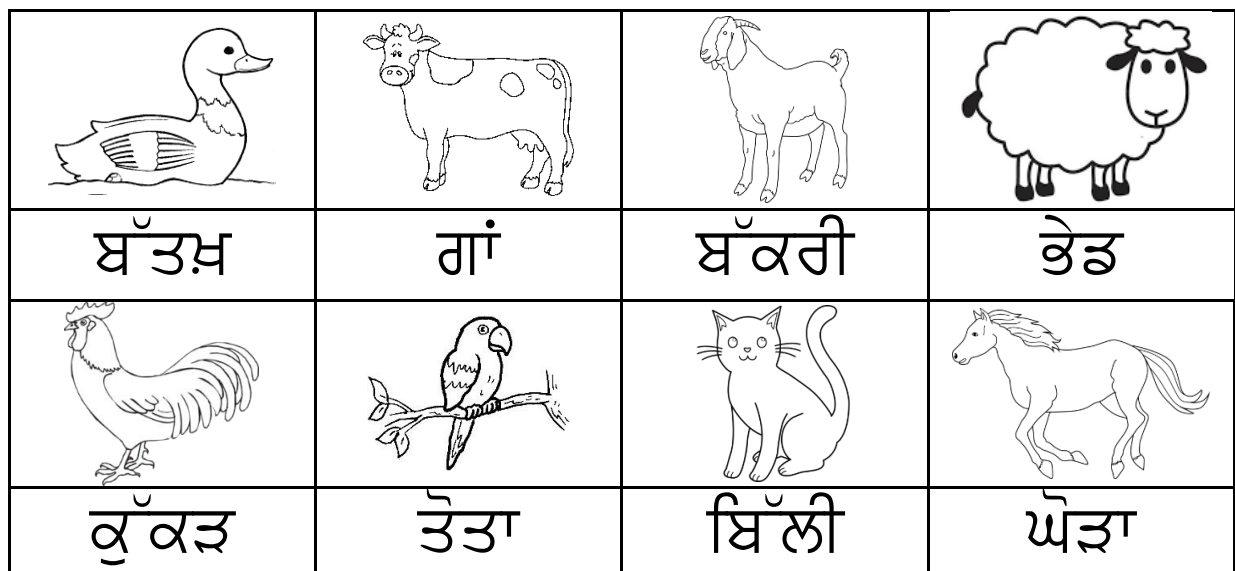 ਬੱਤਖ਼ ਗਾਂ ਬੱਕਰੀ ਭੇਡ
ਕੁੱਕੜ ਤੋਤਾ ਬਿੱਲੀ ਘੋੜਾ